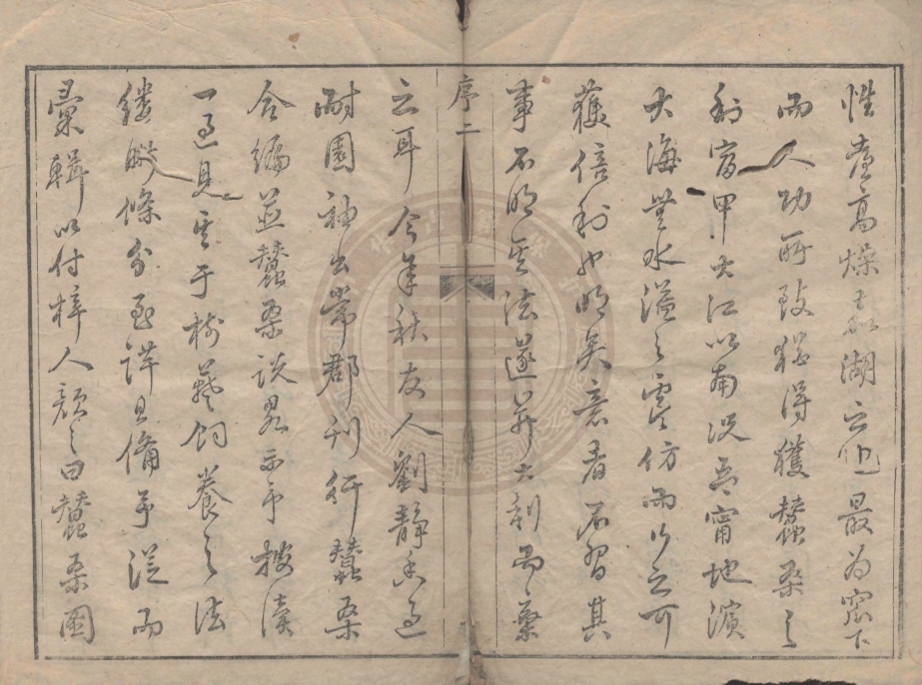 性產高燥吾湖之地最為窊下
而人功所致猶得獲蠶桑之
利富甲大江以南況吾甯地濱
大海無水溢之虞仿而行之可
獲倍利也明矣意者不習其
事不明其法遂并大利而棄
序二
之耳今年秋友人劉靜亝過
耐園袖出常郡刊行蠶桑
合編並蠶桑說畧示予披讀
一過見其于樹藝飼養之法
縷晰條分至詳且備予從而
彙輯以付梓人顏之曰蠶桑圖